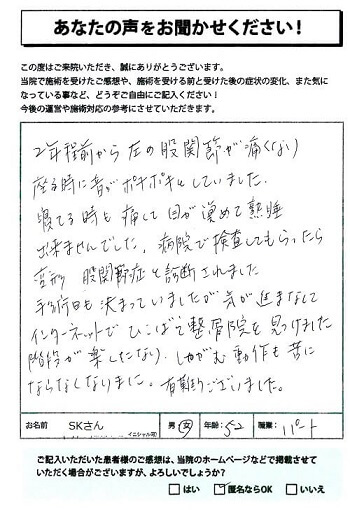 あなたの声をお聞かせください!
この度はご来院いただき、誠にありがとうございます。
当院で施術を受けたご感想や、施術を受ける前と受けた後の症状の変化、また気に
なっている事など、どうぞご自由にご記入ください!
今後の運営や施術対応の参考にさせていただきます。
2年程前から左の股関節が痛くなり
座る時に音がポキポキしていました。
寝てる時も痛くて目が覚めて熟睡
出来ませんでした。病院で検査してもらったら
変形 股関節症と診断されました
手術日も決まっていましたが気が進まなくて
インターネットでひこばえ整骨院を見つけました
階段が楽しくなり、しゃがむ動作も苦に
ならなくなりました。有難うございました。
お名前 SKさん イニシャル可 男 女 年齢: 52 職業: パート
ご記入いただいた患者様のご感想は、当院のホームページなどで掲載させて
いただく場合がございますが、よろしいでしょうか?
□はい ☑匿名ならOK □いいえ